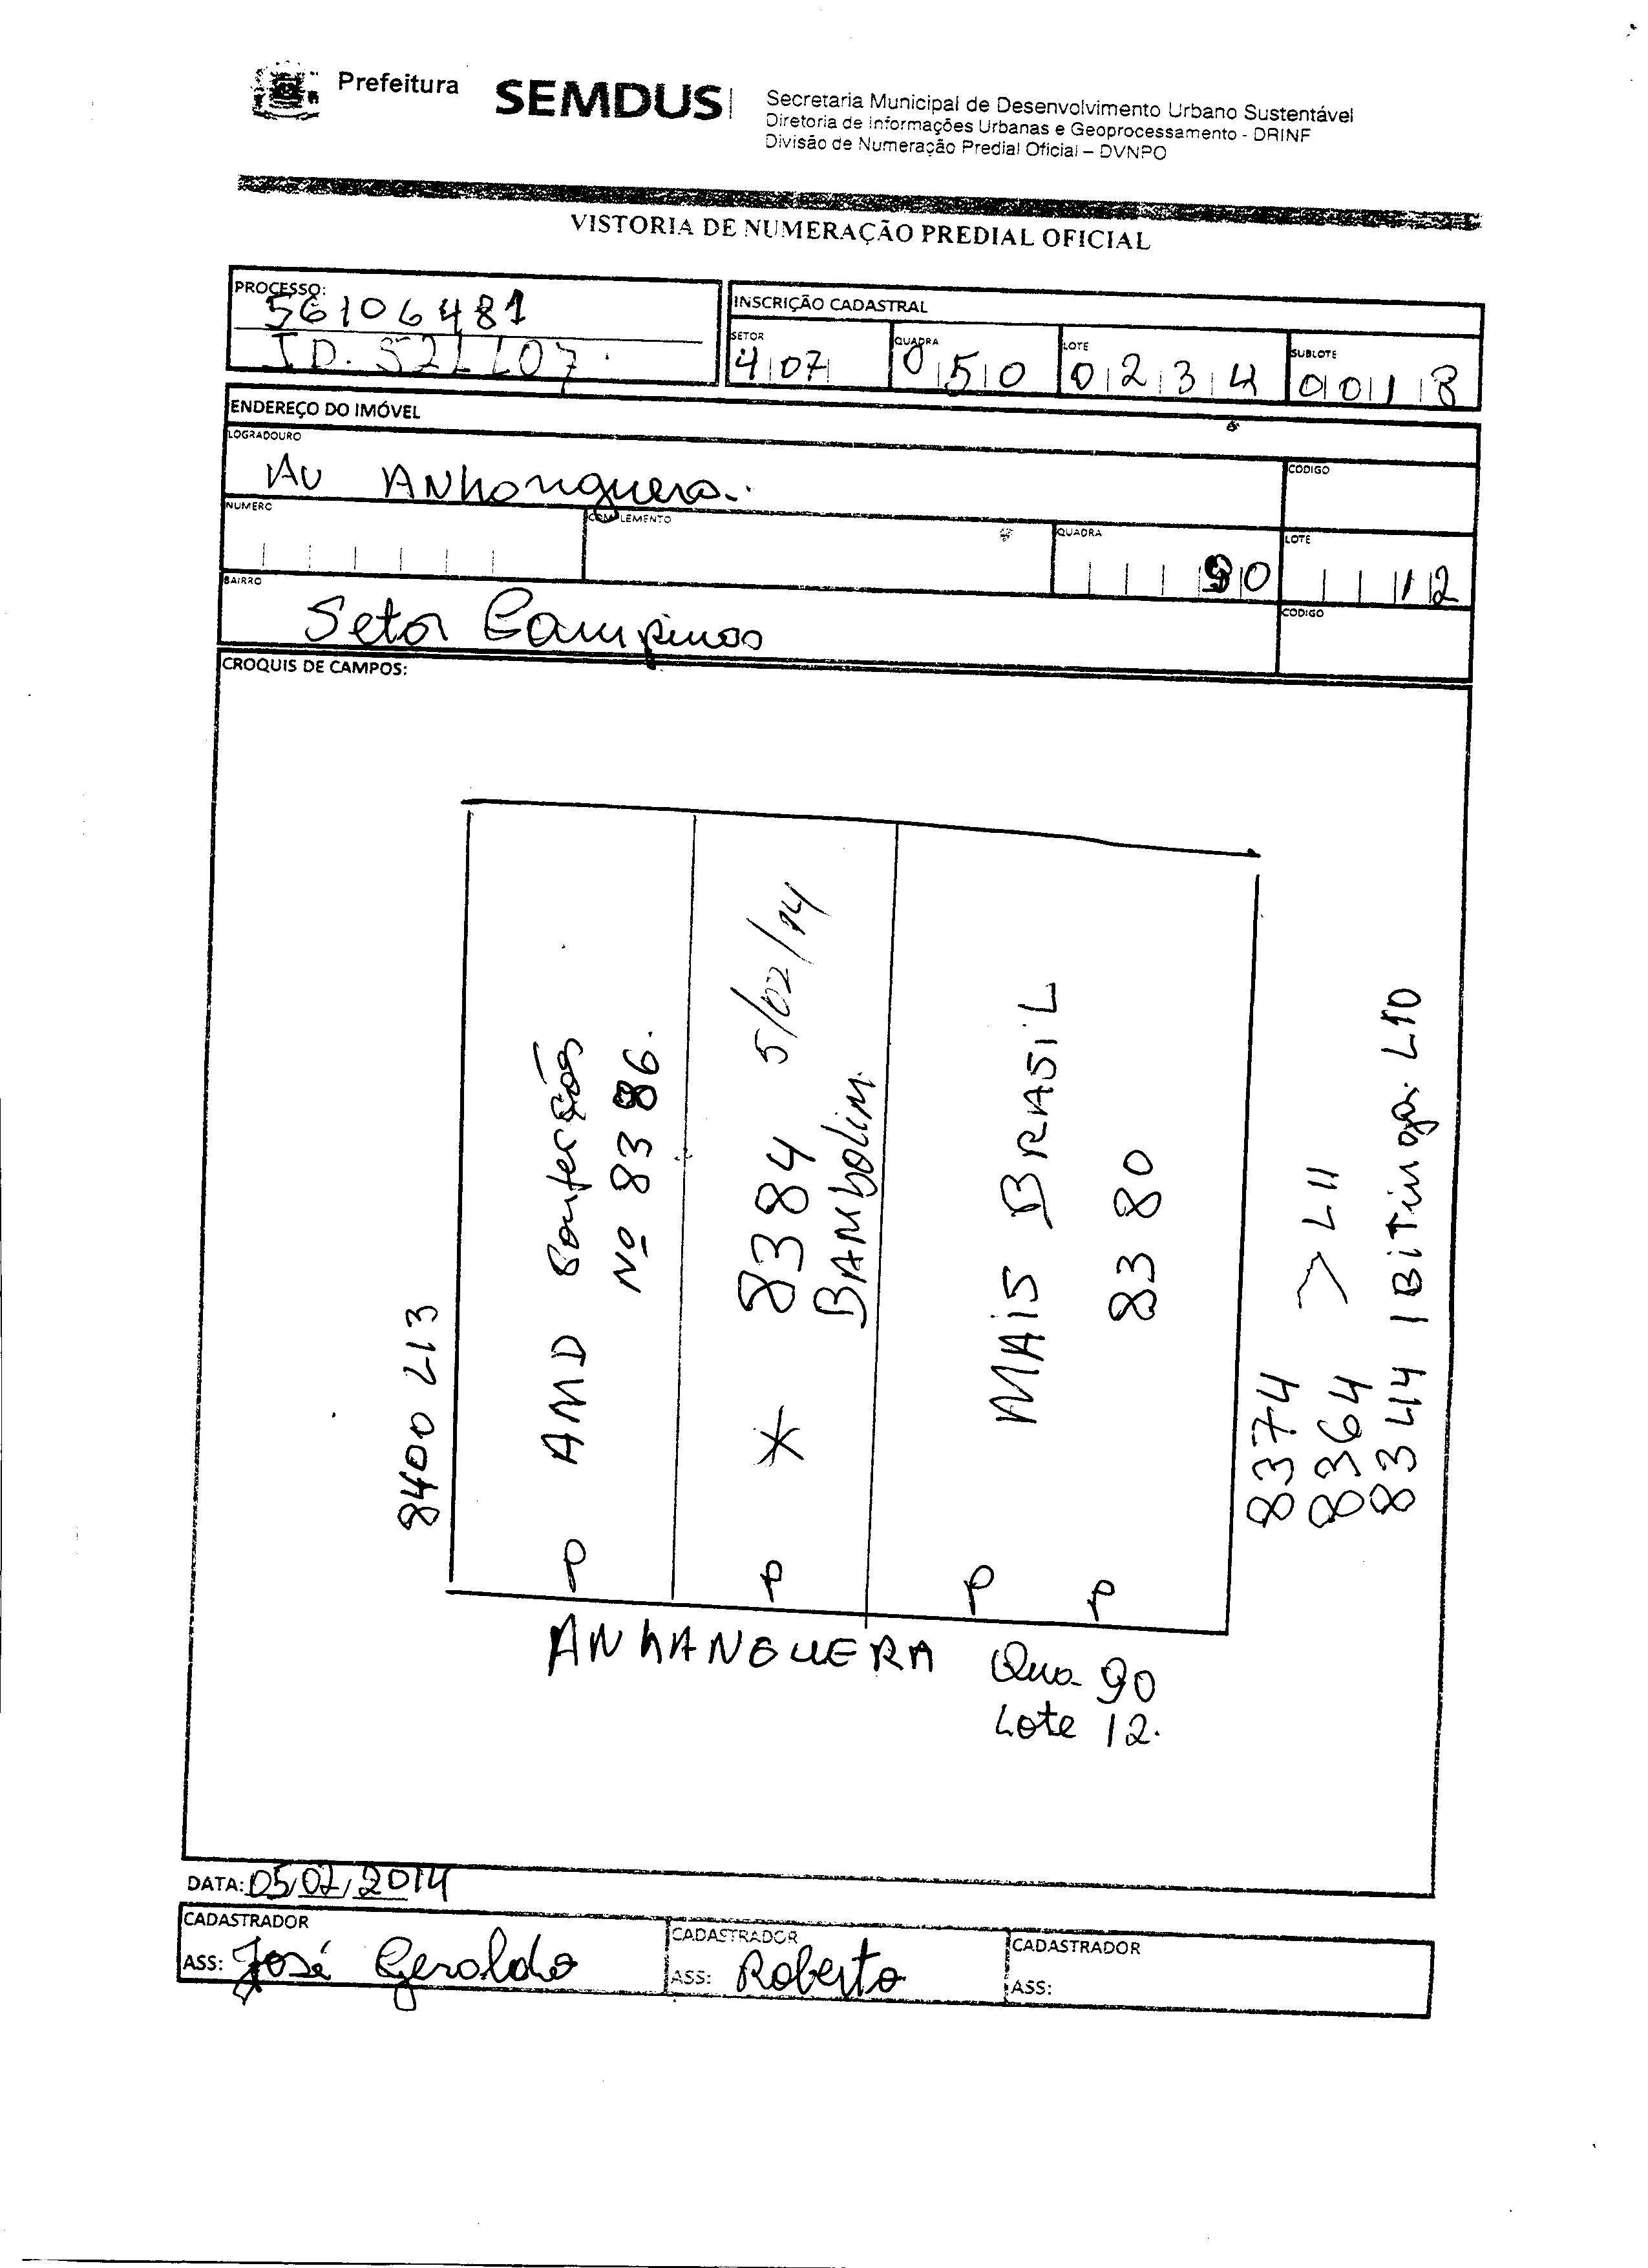 Prefeitura
SEMDUS
Secretaria Municipal de Desenvolvimento Urbano Sustentável
Diretoria de Informações Urbanas e Geoprocessamento - DRINF
Divisão de Numeração Predial Oficial – DVNPO
VISTORIA DE NUMERAÇÃO PREDIAL OFICIAL
PROCESSO:
56106481
INSCRIÇÃO CADASTRAL
SETOR
407
QUADRA
050
LOTE
0234
SUBLOTE
0018
ENDEREÇO DO IMÓVEL
LOGRADOURO
Av Anhanguera.
CODIGO
NUMERO
COMPLEMENTO
QUADRA
90
LOTE
12
BAIRRO
Setor Campinas
CODIGO
CROQUIS DE CAMPOS:
8400 L13
P AMD Confecções
Nº 8386.
P * 8384 5/02/14
BAMbolim.
P MAIS BRASIL
P 8380
8374
8364 > L11
8344 IBITinga. L10
ANhANGUERA Qua 90
Lote 12.
DATA: 05/02/2014
CADASTRADOR
ASS: José Geraldo
CADASTRADOR
ASS: Roberto
CADASTRADOR
ASS: